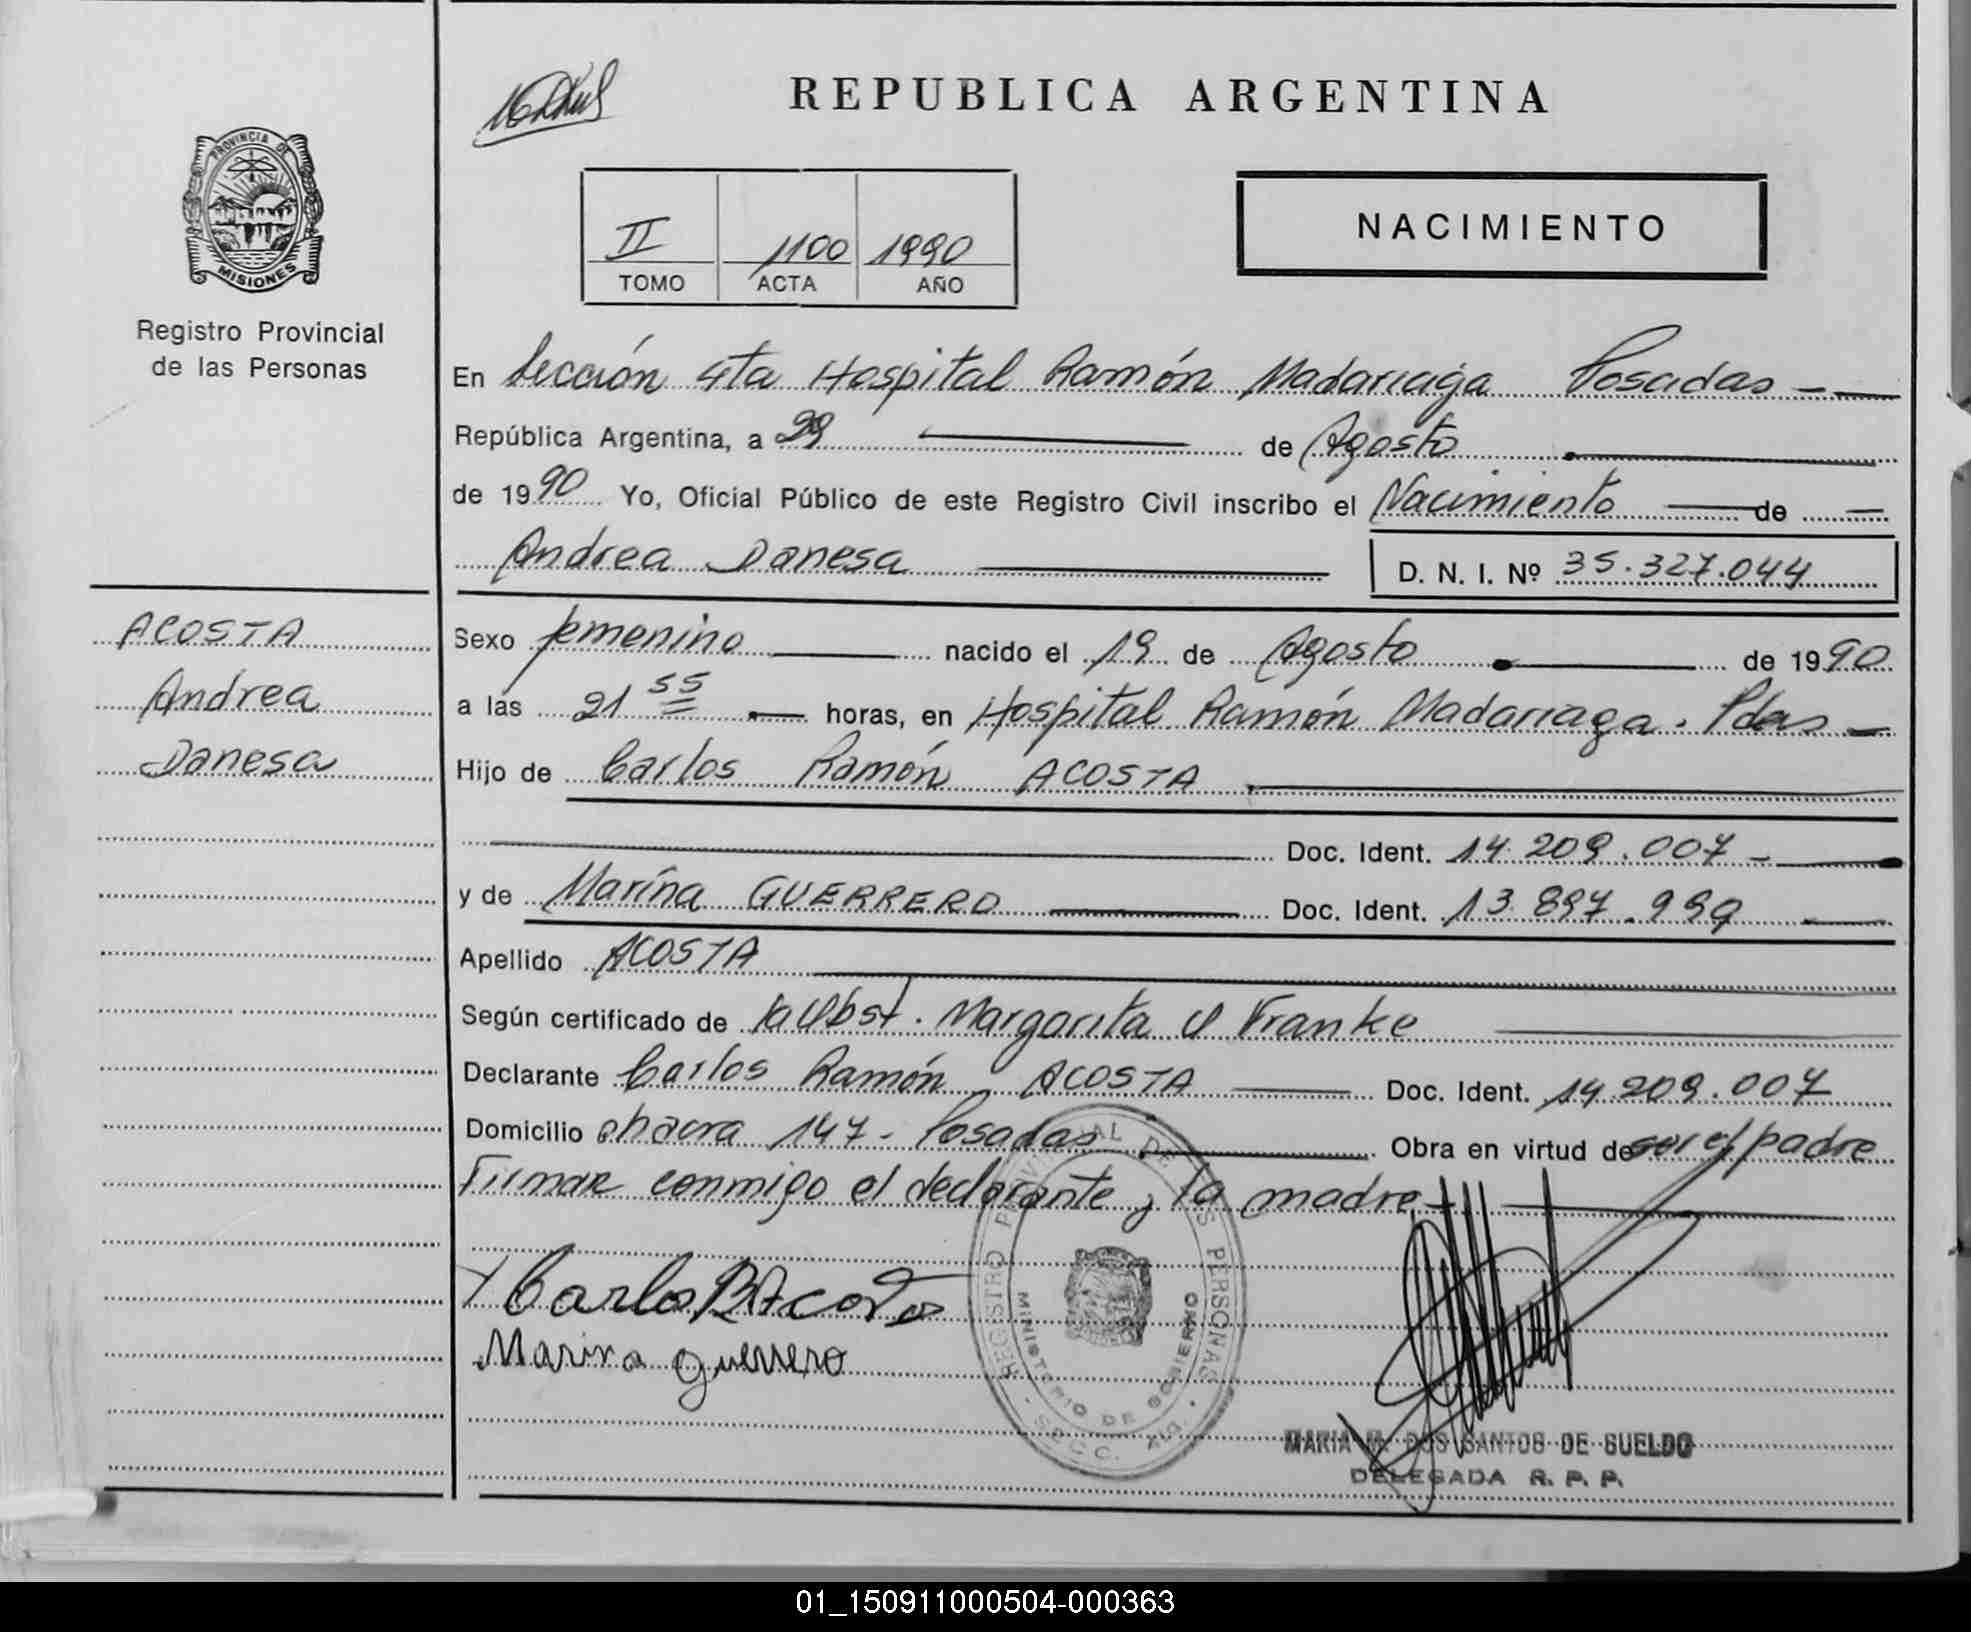 REPUBLICA ARGENTINA
PROVINCIA DE
MISIONES
Registro Provincial
de las Personas
II 1100 1990
TOMO ACTA AÑO
NACIMIENTO
En Sección 4ta Hospital Ramón Madariaga Posadas
República Argentina, a 29 de Agosto
de 1990 Yo, Oficial Público de este Registro Civil inscribo el Nacimiento de
Andrea Danesa D. N. I. Nº 35.327.044
ACOSTA
Andrea
Danesa
Sexo femenino nacido el 19 de Agosto de 1990
a las 21 55 horas, en Hospital Ramón Madariaga. Pdas
Hijo de Carlos Ramón ACOSTA
Doc. Ident. 14.209.007
y de Marina GUERRERO Doc. Ident. 13.897.999
Apellido ACOSTA
Según certificado de la Obst. Margarita Franke
Declarante Carlos Ramón ACOSTA Doc. Ident. 14.209.007
Domicilio chacra 147 - Posadas Obra en virtud de ser el padre
Firman conmigo el declarante y la madre
Carlos R Acosta
Marina guerrero
REGISTRO PROVINCIAL DE LAS PERSONAS
MINISTERIO DE GOBIERNO
MARIA M. DOS SANTOS DE SUELDO
DELEGADA R. P. P.
01_150911000504-000363